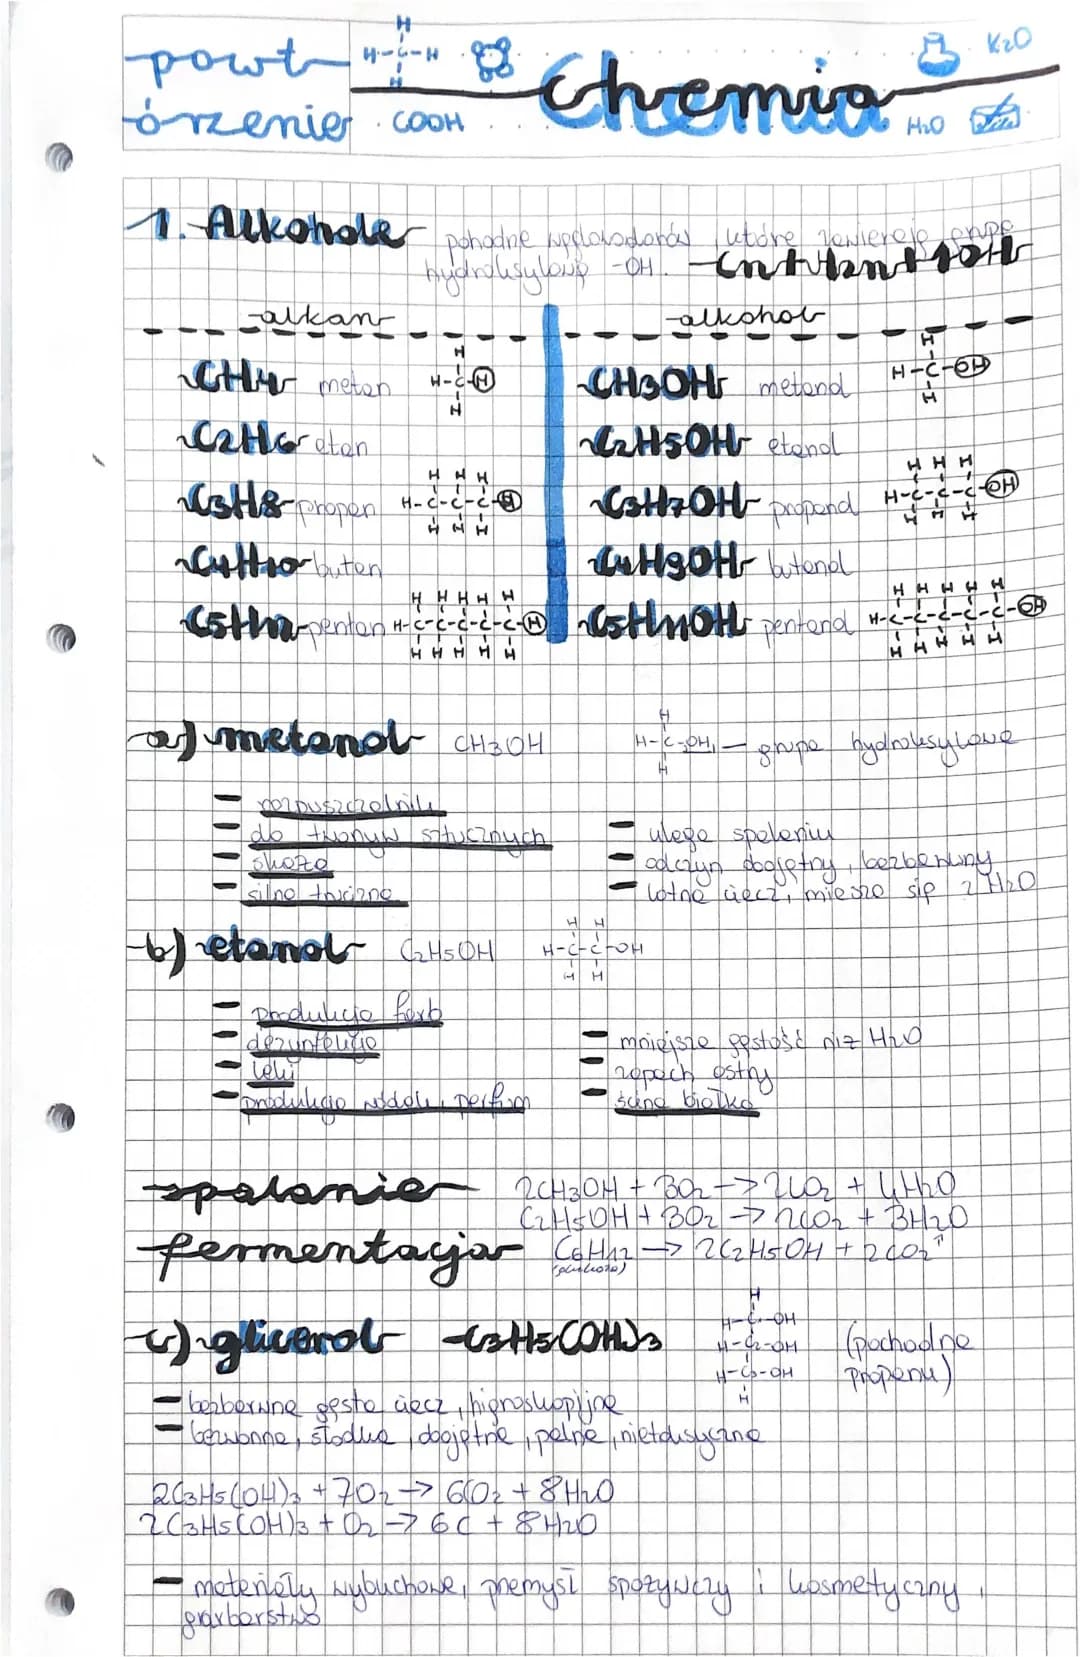 powt
órzenie
H
H-C-H
H
COOH
Chemia
K2O
H2O
1. Alkohole pohodne węglowodorów, które zawierają grupę
hydroksylową -OH. CnH2n+1OH
alkan alkohol
CH4 metan
H
H-C-H
H
CH3OH metanol
H
H-C-OH
H
C2H6 etan
C2H5OH etanol
C3H8 propan
H H H
H-C-C-C-H
H H H
C3H7OH propanol
H H H
H-C-C-C-OH
H H H
C4H10 butan
C4H9OH butanol
C5H12 pentan
H H H H H
H-C-C-C-C-C-H
H H H H H
C5H11OH pentanol
H H H H H
H-C-C-C-C-C-OH
H H H H H
a) metanol CH3OH
H
H-C-OH - grupa hydroksylowa
H
- rozpuszczalnik
- do tworzyw sztucznych
- skaża
- silnie
- ulega spalaniu
- odczyn obojętny, bezbarwny
- lotna ciecz, miesza się z H2O
b) etanol C2H5OH
H H
H-C-C-OH
H H
- produkcja farb
- dezynfekcja
- leki
- produkcja wódek, perfum
- mniejsza gęstość niż H2O
- zapach ostry
- ścina białko
spalanie 2CH3OH + 3O2 -> 2CO2 + 4H2O
C2H5OH + 3O2 -> 2CO2 + 3H2O
fermentacja C6H12 -> 2C2H5OH + 2CO2
(glukoza)
c) glicerol C3H5(OH)3
H
H-C-OH
H-C-OH
H-C-OH
H
(pochodna
propanu)
- bezbarwna gęsta ciecz, higroskopijna
- bezwonna, słodka, obojętna, palna, nietoksyczna
2C3H5(OH)3 + 7O2 -> 6CO2 + 8H2O
2C3H5(OH)3 + O2 -> 6C + 8H2O
- materiały wybuchowe, przemysł spożywczy i kosmetyczny,
garbarstwo